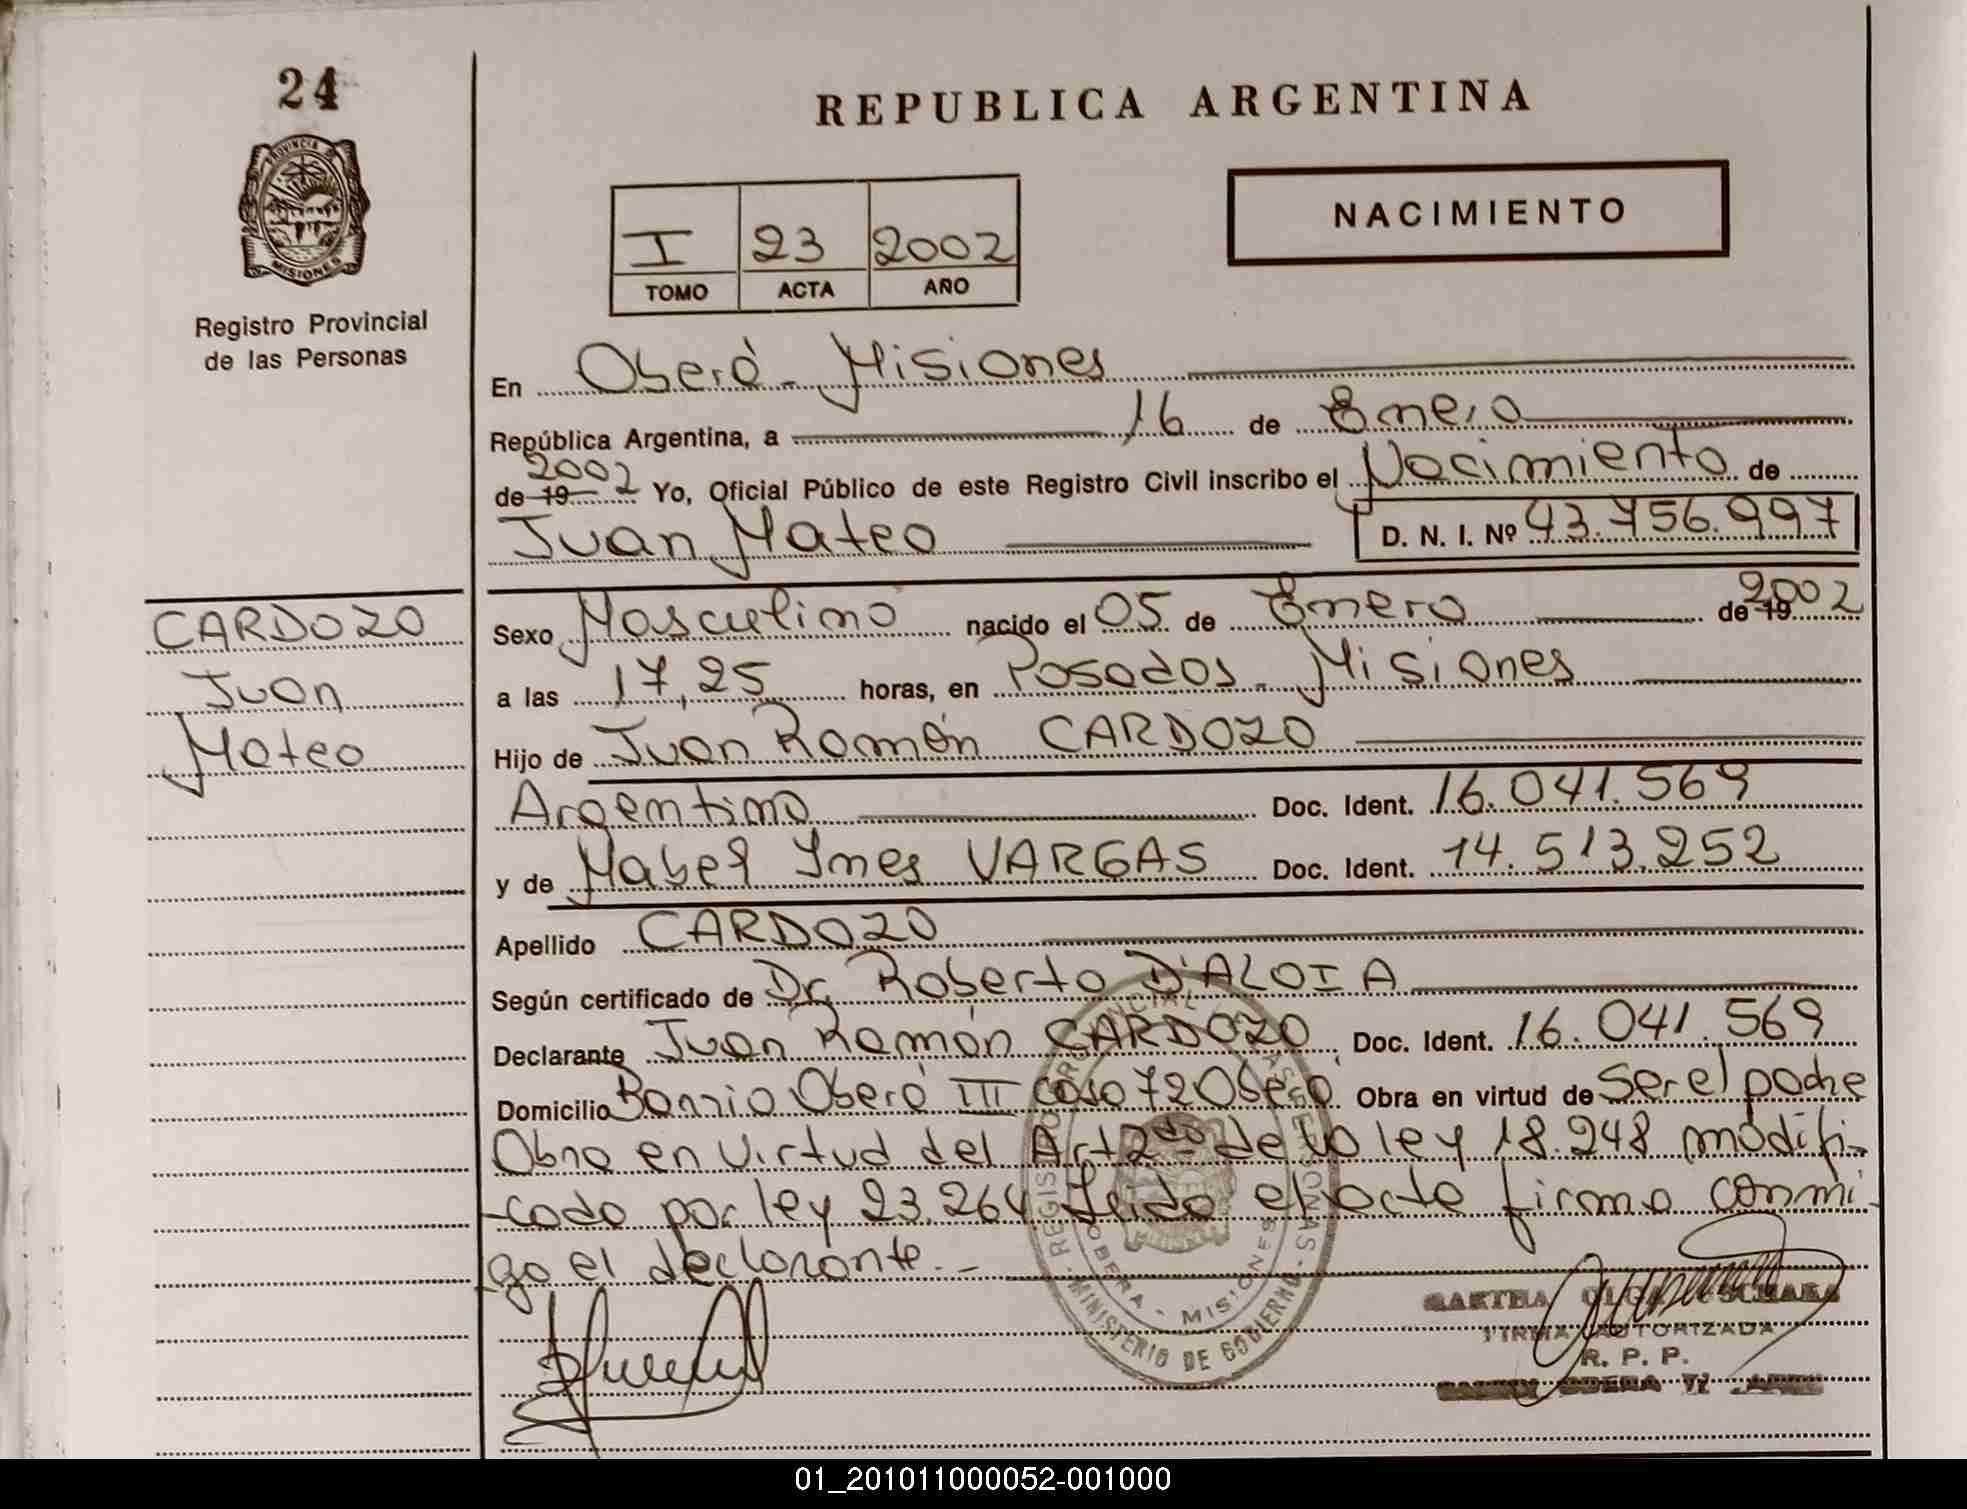 24
REPUBLICA ARGENTINA
PROVINCIA D
MISIONES
Registro Provincial
de las Personas
NACIMIENTO
I 23 2002
TOMO ACTA AÑO
En Oberá - Misiones
República Argentina, a 16 de Enero
de 19 2002 Yo, Oficial Público de este Registro Civil inscribo el Nacimiento de
Juan Mateo D. N. I. Nº 43.756.997
CARDOZO
Juan
Mateo
Sexo Masculino nacido el 05 de Enero de 19 2002
a las 17,25 horas, en Posadas - Misiones
Hijo de Juan Ramón CARDOZO
Argentino Doc. Ident. 16.041.569
y de Mabel Ines VARGAS Doc. Ident. 14.513.252
Apellido CARDOZO
Según certificado de Dr. Roberto D'ALOIA
Declarante Juan Ramón CARDOZO Doc. Ident. 16.041.569
Domicilio Barrio Oberá III casa 72 Oberá Obra en virtud de Ser el padre
Obra en virtud del Art 2do de la ley 18.248 modifi-
-cada por ley 23.264 Leida el acta firma conmi-
-go el declarante.-
MINISTERIO DE GOBIERNO
OBERA - MISIONES
FIRMA AUTORIZADA
R. P. P.
01_201011000052-001000